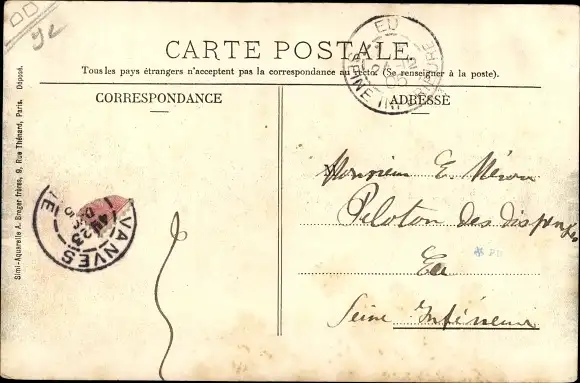 CARTE POSTALE
Tous les pays étrangers n'acceptent pas la correspondance au recto. (Se renseigner à la poste).
CORRESPONDANCE
ADRESSE
Monsieur E.
Peloton des dispensés
Eu
Seine Inférieure
EU
SEINE INFÉRIEURE
VANVES
23
Simi-Aquarelle A. Breger frères, 9, Rue Thénard, Paris. Déposé.